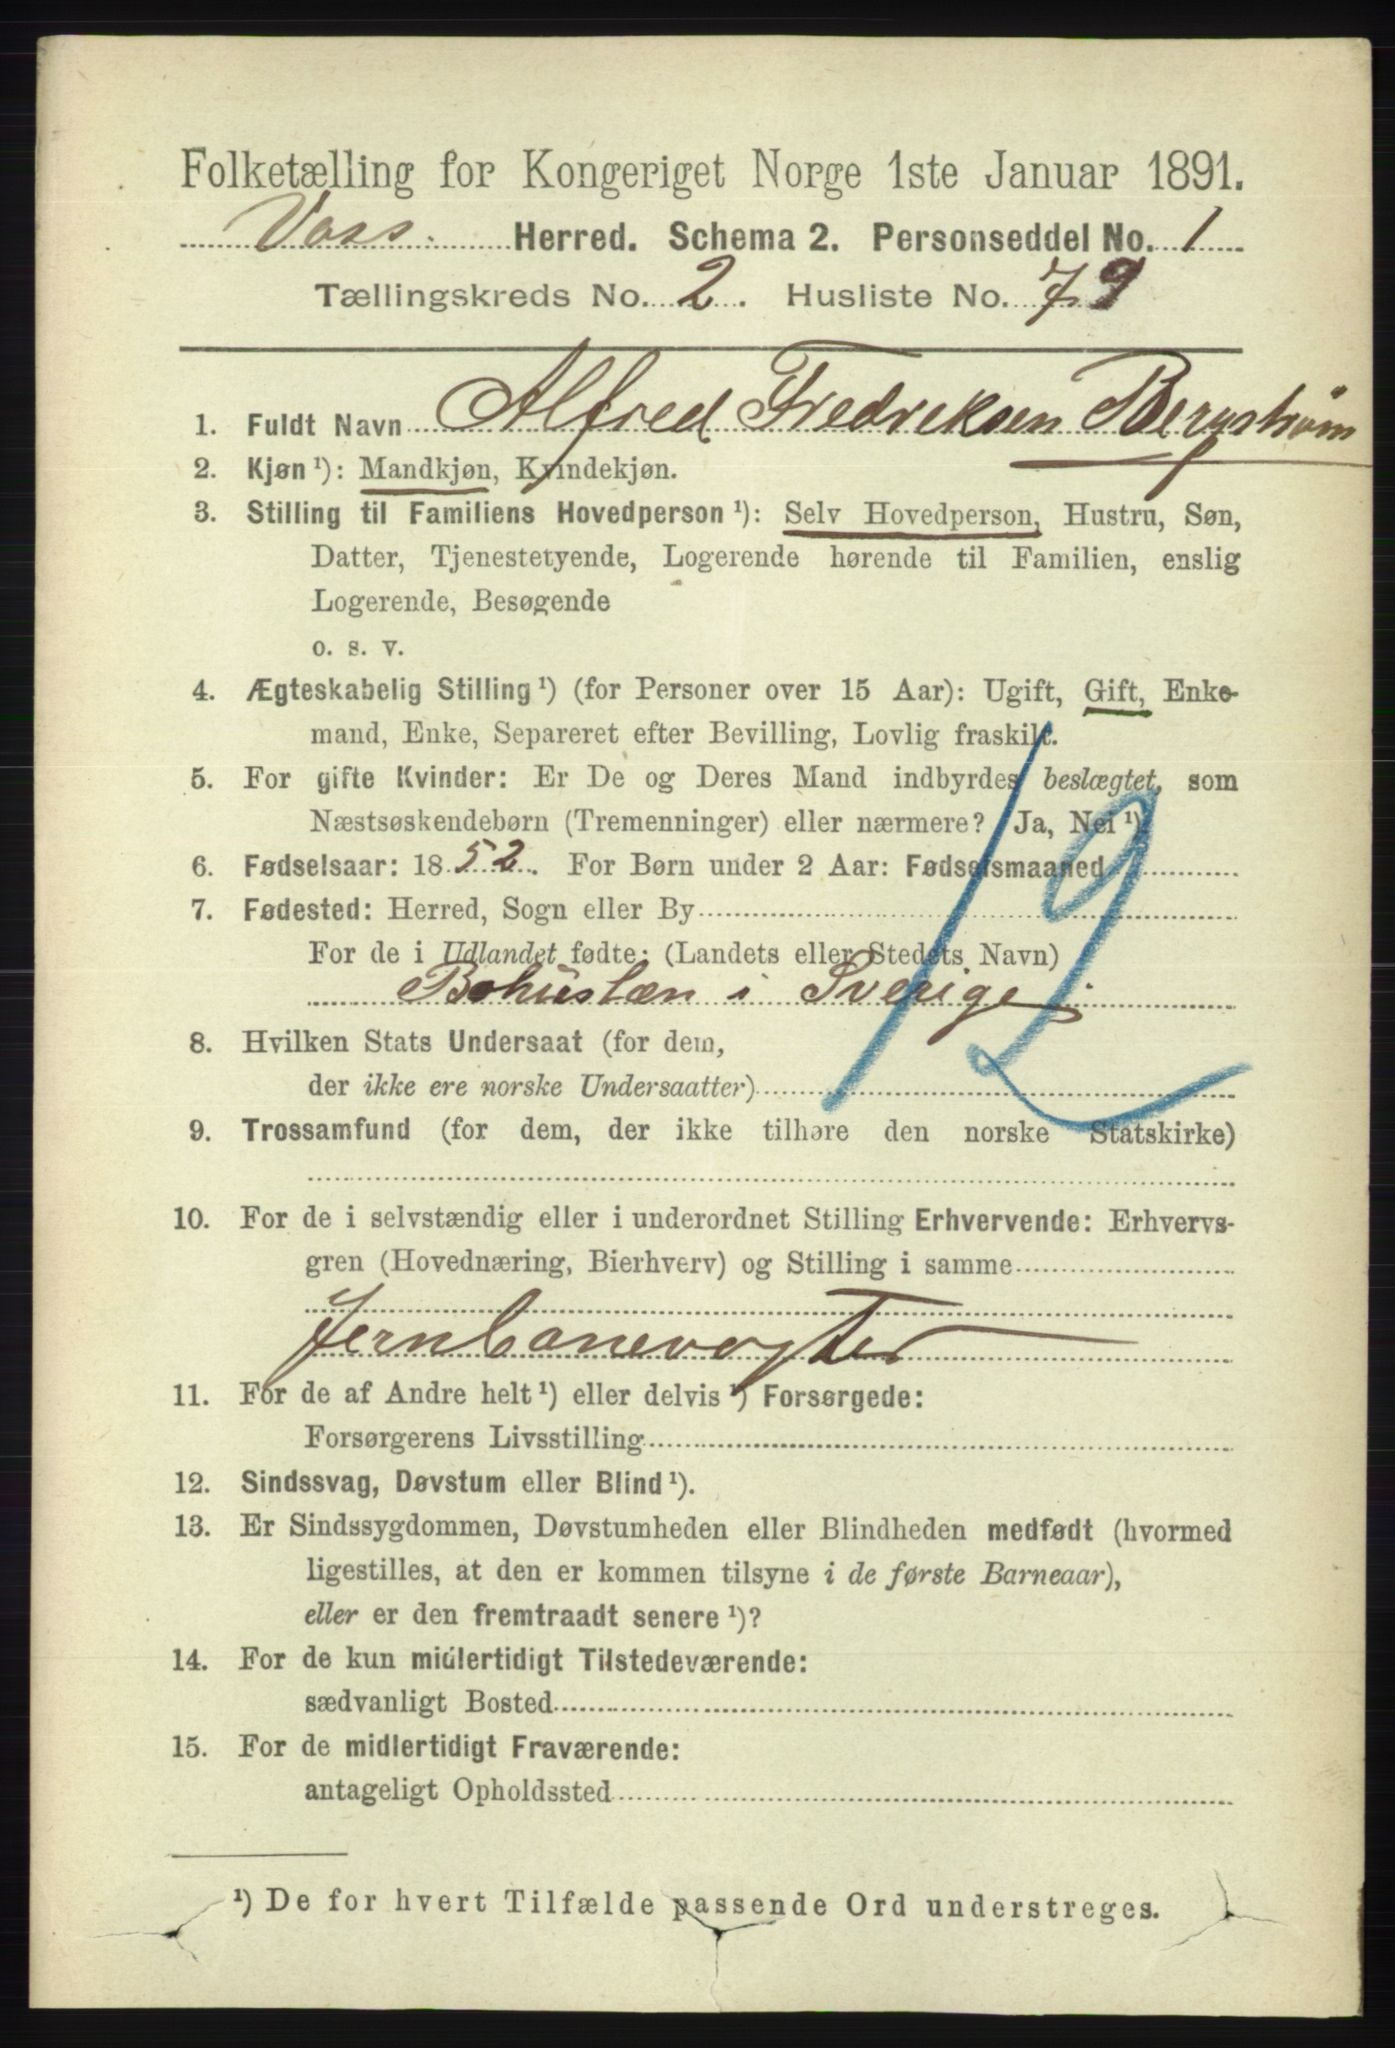 Folketælling for Kongeriget Norge 1ste Januar 1891.
Voss. Herred. Schema 2. Personseddel No. 1
Tællingskreds No. 2. Husliste No. 79
1. Fuldt Navn Alfred Fredriksen Bergstrøm
2. Kjøn¹): Mandkjøn, Kvindekjøn.
3. Stilling til Familiens Hovedperson¹): Selv Hovedperson, Hustru, Søn,
Datter, Tjenestetyende, Logerende hørende til Familien, enslig
Logerende, Besøgende
o. s. v.
4. Ægteskabelig Stilling¹) (for Personer over 15 Aar): Ugift, Gift, Enke-
mand, Enke, Separeret efter Bevilling, Lovlig fraskilt.
5. For gifte Kvinder: Er De og Deres Mand indbyrdes beslægtet, som
Næstsøskendebørn (Tremenninger) eller nærmere? Ja, Nei¹)
6. Fødselsaar: 1852. For Børn under 2 Aar: Fødselsmaaned
7. Fødested: Herred, Sogn eller By
For de i Udlandet fødte: (Landets eller Stedets Navn)
Bohuslæn i Sverige
12
8. Hvilken Stats Undersaat (for dem,
der ikke ere norske Undersaatter)
9. Trossamfund (for dem, der ikke tilhøre den norske Statskirke)
10. For de i selvstændig eller i underordnet Stilling Erhvervende: Erhvervs-
gren (Hovednæring, Bierhverv) og Stilling i samme
Jernbanevogter
11. For de af Andre helt¹) eller delvis¹) Forsørgede:
Forsørgerens Livsstilling
12. Sindssvag, Døvstum eller Blind¹).
13. Er Sindssygdommen, Døvstumheden eller Blindheden medfødt (hvormed
ligestilles, at den er kommen tilsyne i de første Barneaar),
eller er den fremtraadt senere¹)?
14. For de kun midlertidigt Tilstedeværende:
sædvanligt Bosted
15. For de midlertidigt Fraværende:
antageligt Opholdssted
¹) De for hvert Tilfælde passende Ord understreges.